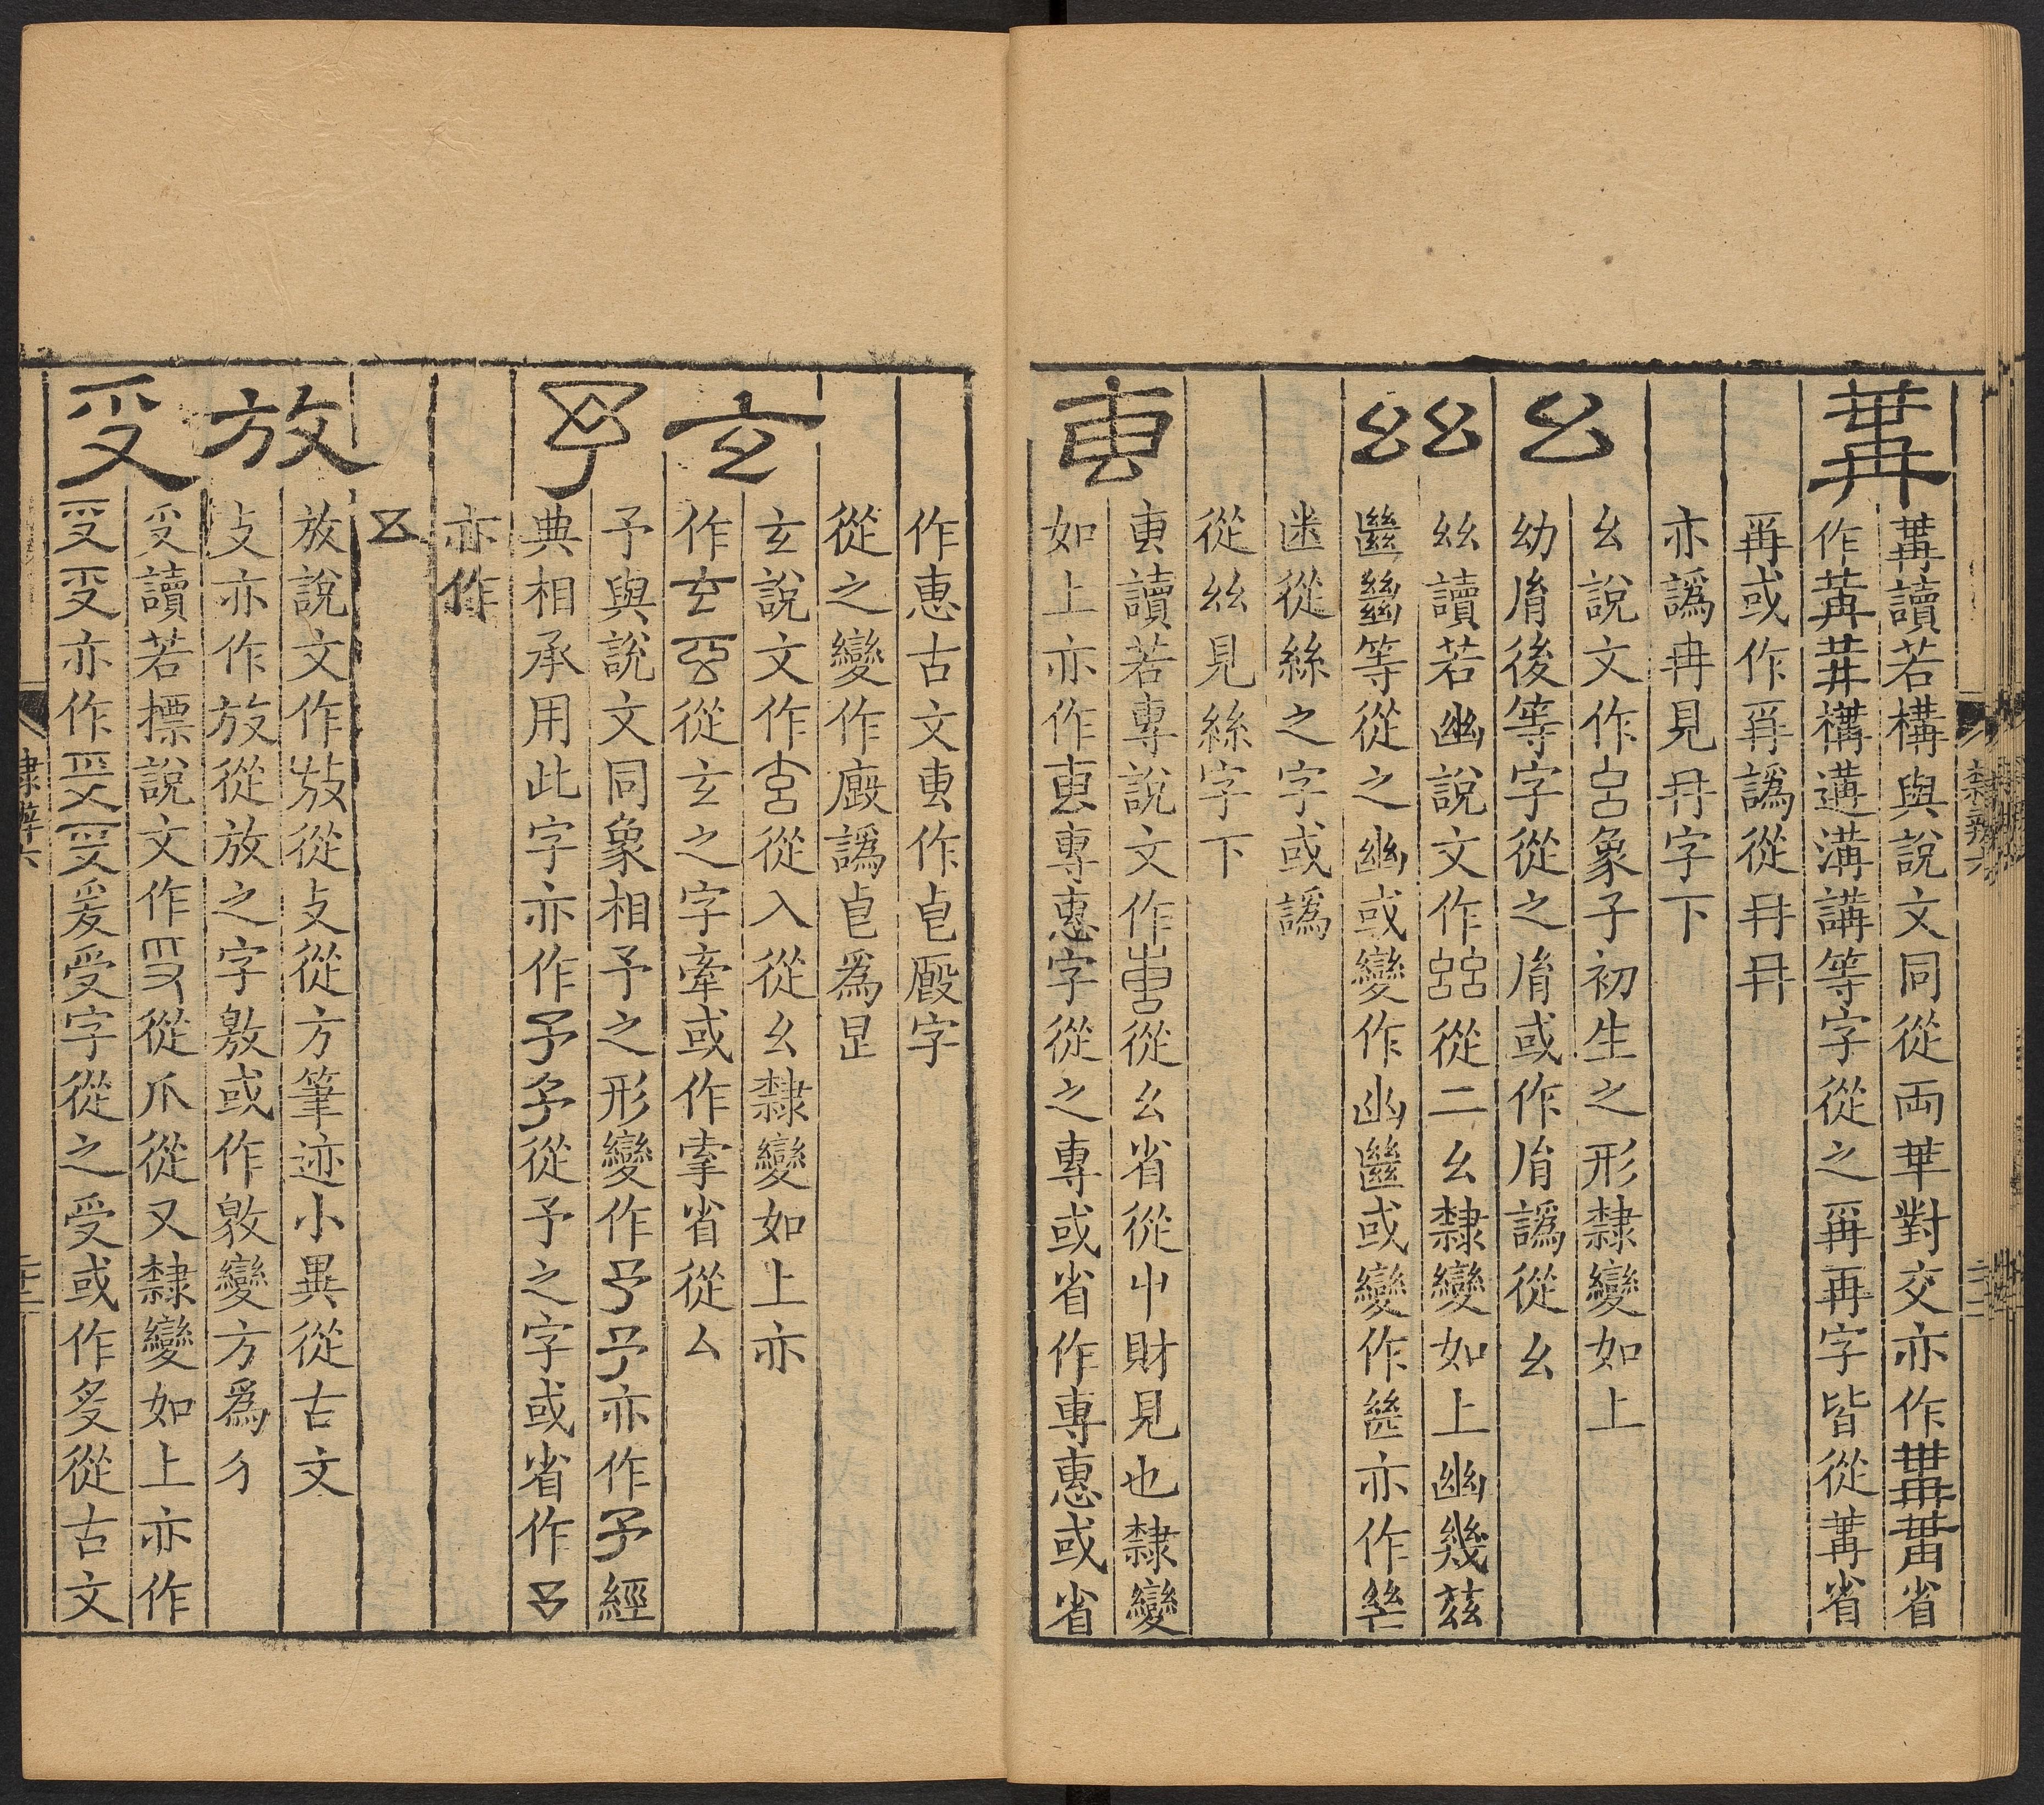 冓
冓讀若構與說文同從兩𠦒對交亦作省
作構遘溝講等字從之爯再字皆從冓省
爯或作譌從冄冄
亦譌冉見冄字下
幺
幺說文作象子初生之形隸變如上
幼胤後等字從之胤或作譌從幺
𢆶
𢆶讀若幽說文作從二幺隸變如上幽幾茲
等從之幽或變作或變作亦作
從絲之字或譌
從𢆶見絲字下
叀
叀讀若專說文作從幺省從屮財見也隸變
如上亦作專惠字從之專或省作惠或省
作恵古文叀作皀廄字
從之變作廏譌皀爲
玄
玄說文作從入從幺隸變如上亦
作從玄之字牽或作省從厶
予
予與說文同象相予之形變作亦作予經
典相承用此字亦作從予之字或省作
亦作
放
放說文作從攴從方筆迹小異從古文
攴亦作放從放之字敫或作變方爲
𠬪
𠬪讀若摽說文作從爪從又隸變如上亦作
亦作爰受字從之受或作從古文
隸辨六